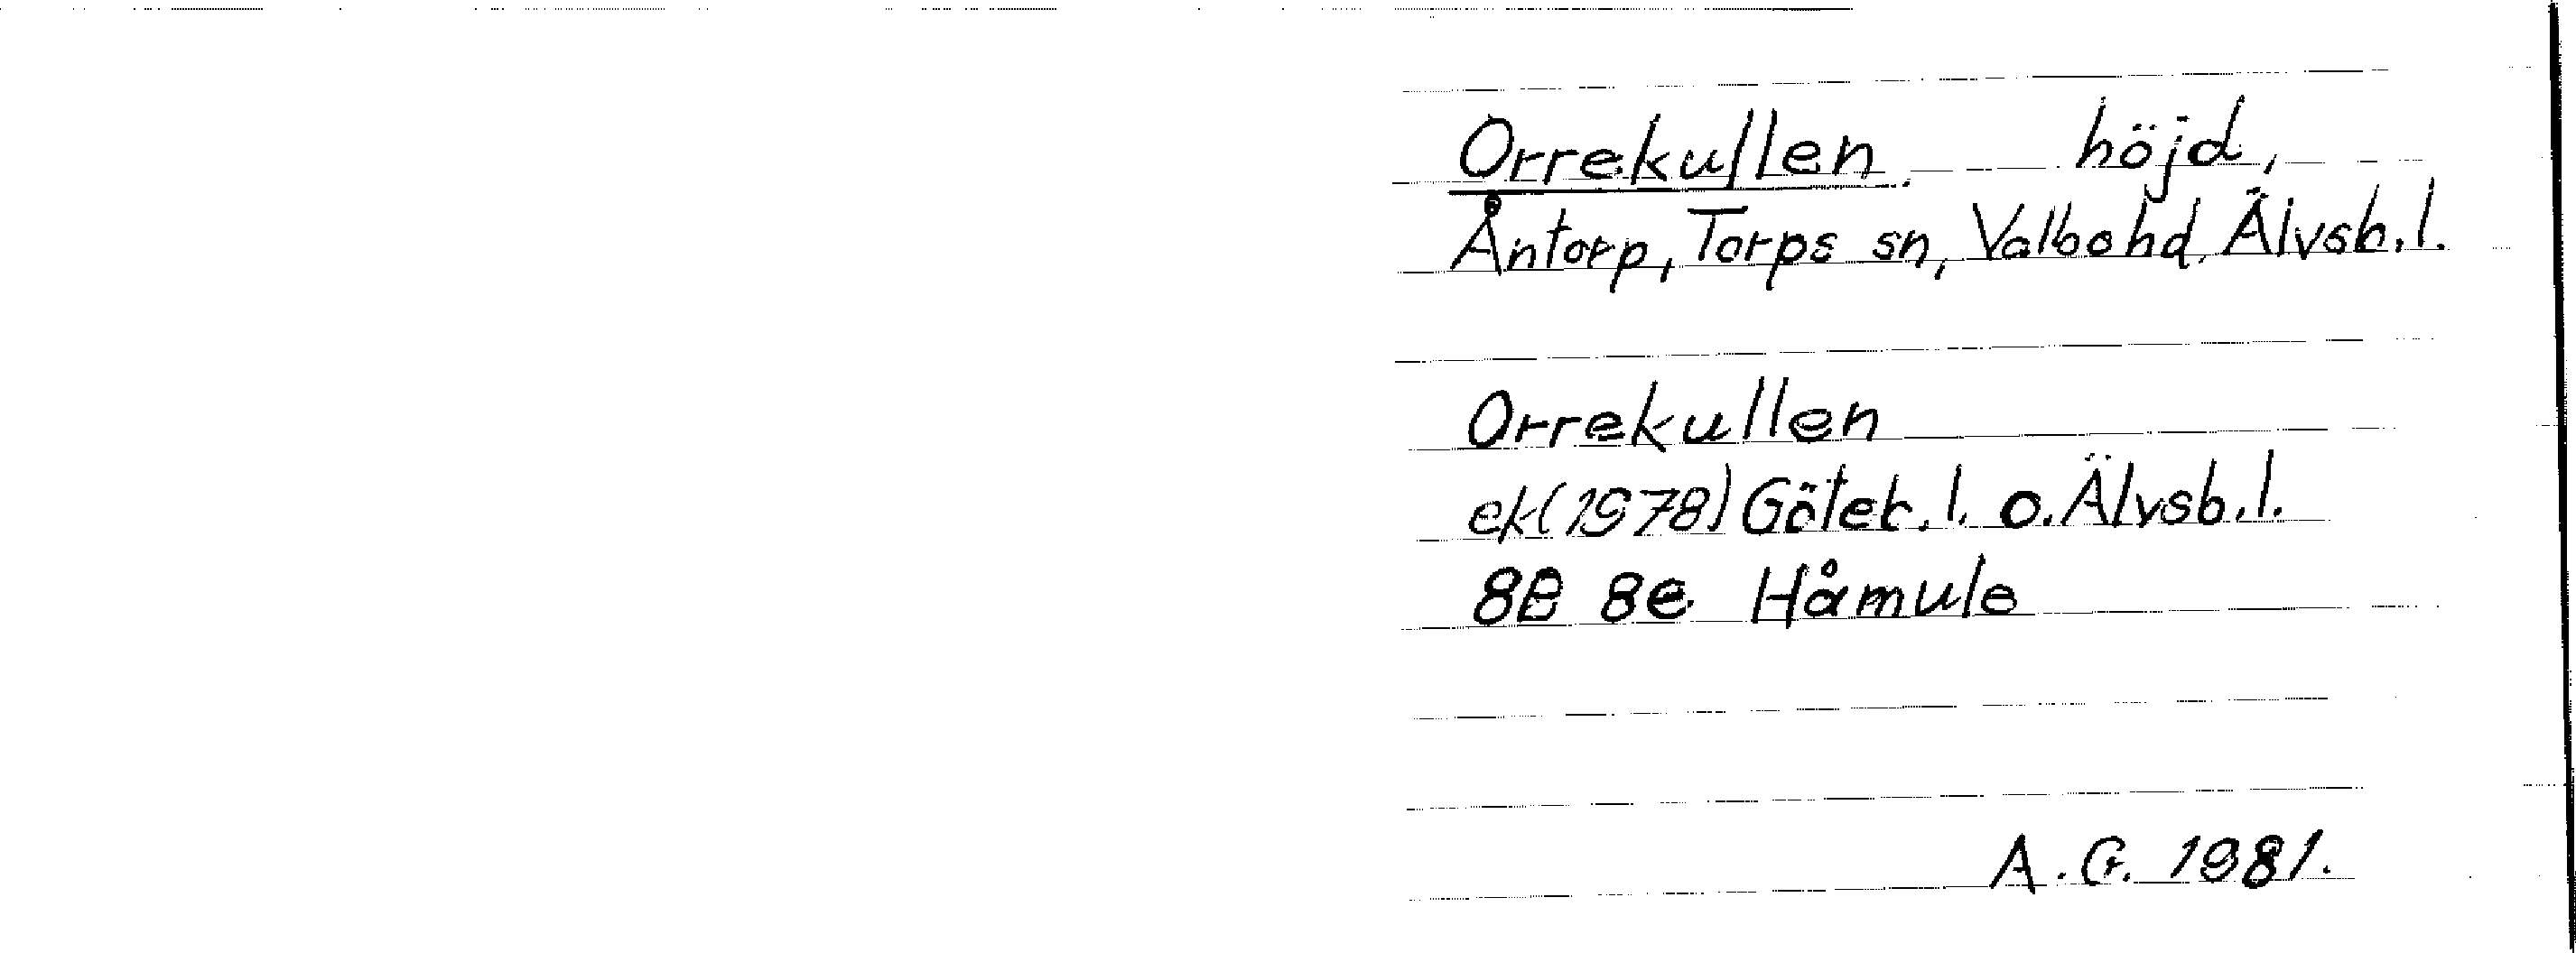 Orrekullen höjd,
Åntorp, Torps sn, Valbo hd, Älvsb.l.
Orrekullen
ek(1978) Göteb.l. o. Älvsb.l.
8B 8e Håmule
A.G. 1981.